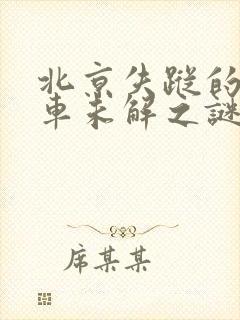 北京失蹤的
車未解之謎
席某某